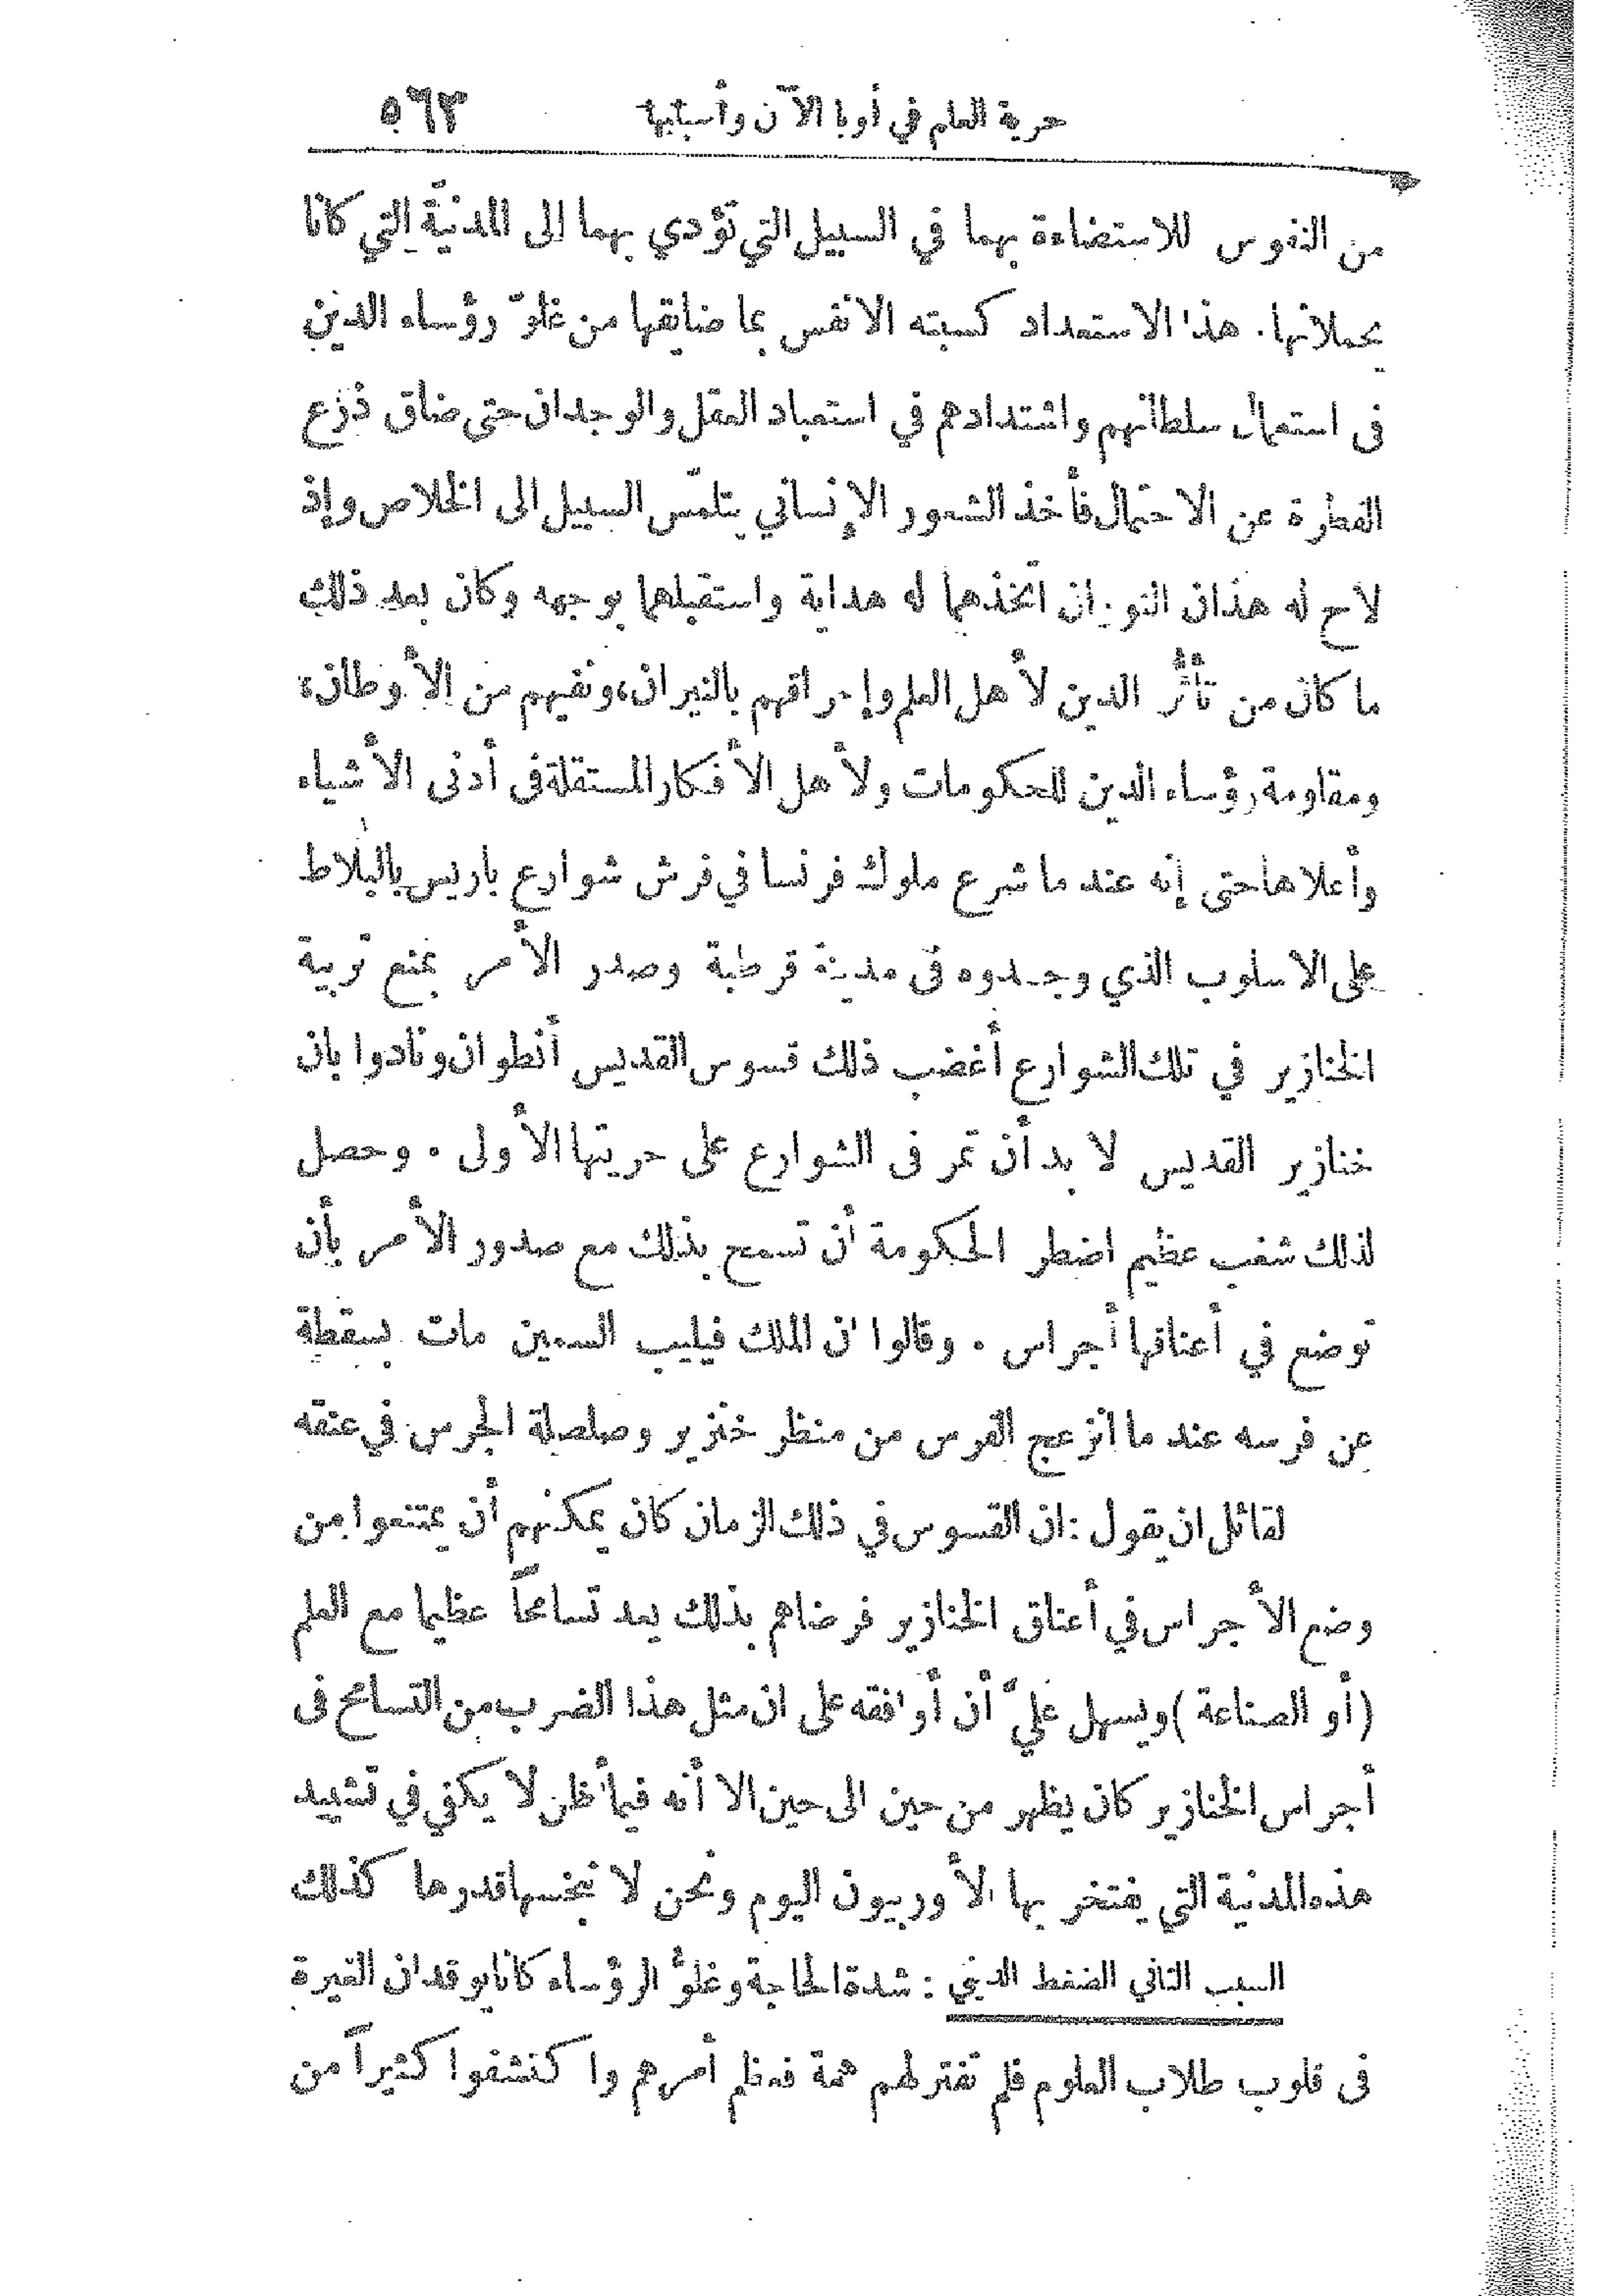 حرية العلم في أوبا الآن وأسبابها ٥٦٣
من النفوس للاستضاءة بهما في السبيل التي تؤدي بهما إلى المدنيّة التي كانا
يحملانها. هذا الاستعداد كسبته الانفس بما ضايقها من غلوّ رؤساء الدين
فى استعمال سلطانهم واشتدادهم في استعباد العقل والوجدان حتى ضاق ذرع
الفطرة عن الاحتمال فأخذ الشعور الإنساني يتلمّس السبيل الى الخلاص وإذ
لاح له هذان النوران اتخذهما له هداية واستقبلهما بوجهه وكان بعد ذلك
ما كان من تأثُّر الدين لأهل العلم وإحراقهم بالنيران، ونفيهم من الأوطان،
ومقاومة رؤساء الدين للحكومات ولأهل الأفكار المستقلة فى أدنى الأشياء
وأعلاها حتى إنه عند ما شرع ملوك فرنسا في فرش شوارع باريس بالبلاط
على الاسلوب الذي وجدوه فى مدينة قرطبة وصدر الأمر بمنع تربية
الخنازير في تلك الشوارع أغضب ذلك قسوس القديس أنطوان ونادوا بان
خنازير القديس لا بد أن تمر فى الشوارع على حريتها الأولى . وحصل
لذلك شغب عظيم اضطر الحكومة أن تسمح بذلك مع صدور الأمر بأن
توضع في أعناقها أجراس . وقالوا ان الملك فيليب السمين مات بسقطة
عن فرسه عند ما انزعج الفرس من منظر خنزير وصلصلة الجرس في عنقه
لقائل ان يقول : ان القسوس في ذلك الزمان كان يمكنهم أن يمتنعوا من
وضع الأجراس في أعناق الخنازير فرضاهم بذلك يعد تسامحاً عظيما مع العلم
(أو الصناعة) ويسهل عليّ أن أوافقه على ان مثل هذا الضرب من التسامح فى
أجراس الخنازير كان يظهر من حين الى حين الا أنه فيما أظن لا يكفي في تشييد
هذه المدنية التي يفتخر بها الأوربيون اليوم ونحن لا نبخسها قدرها كذلك
السبب الثاني الضغط الديني : شدة الحاجة وغلوُّ الرؤساء كانا يوقدان الغيرة
فى قلوب طلاب العلوم فلم تفتر لهم همة فعظم أمرهم واكتشفوا كثيراً من